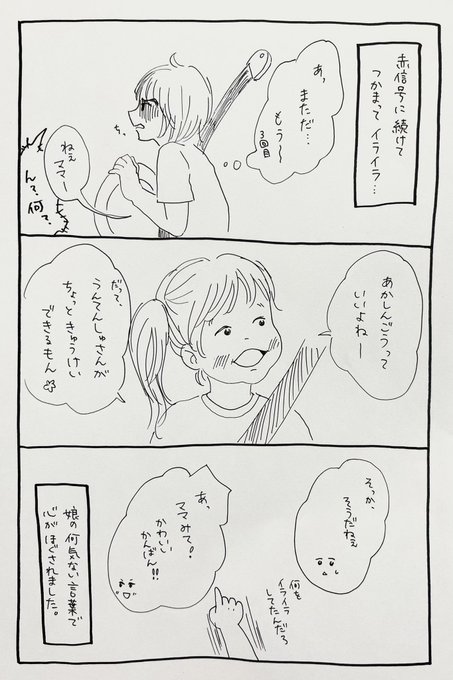 赤信号に続けて
つかまってイライラ…
あ、
まただ…
もう〜
3回目
ち、
ねぇ
ママー
ん?、何?、
あかしんごうって
いいよねー
だって、
うんてんしゅさんが
ちょっときゅうけい
できるもん
そっか、
そうだねぇ
何を
イライラ
してたんだろ
あ、
ママみて!
かわいい
かんばん!!
娘の何気ない言葉で
心がほぐされました。